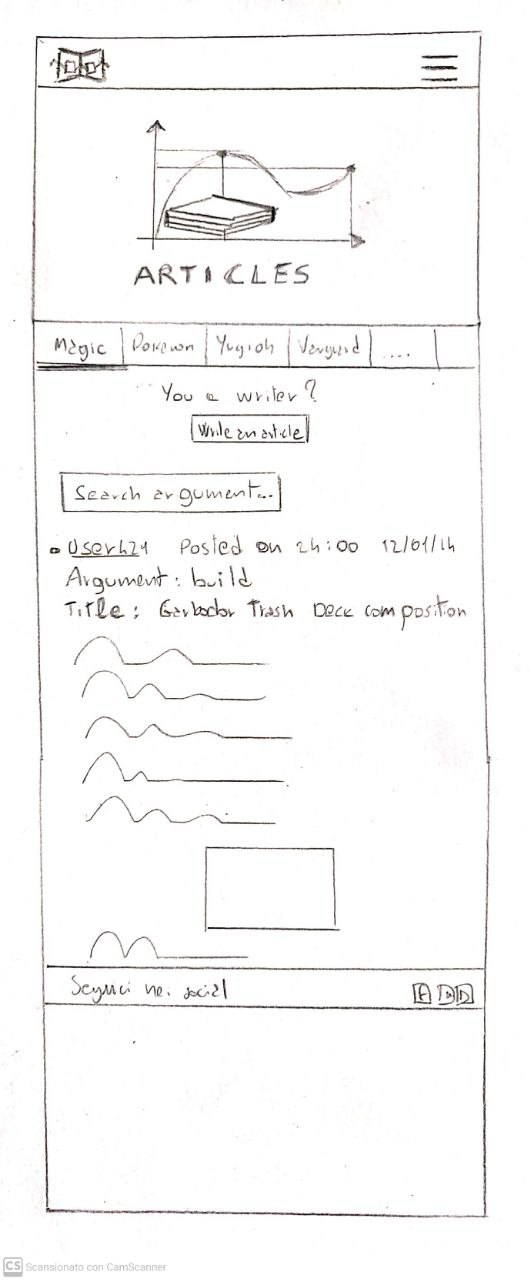 ARTICLES
Magic Pokemon Yugioh Vanguard ....
You a writer?
Write an article
Search argument...
User421 Posted on 24:00 12/01/14
Argument: build
Title: Garbodor Trash Deck composition
Seguici nei social
CS Scansionato con CamScanner